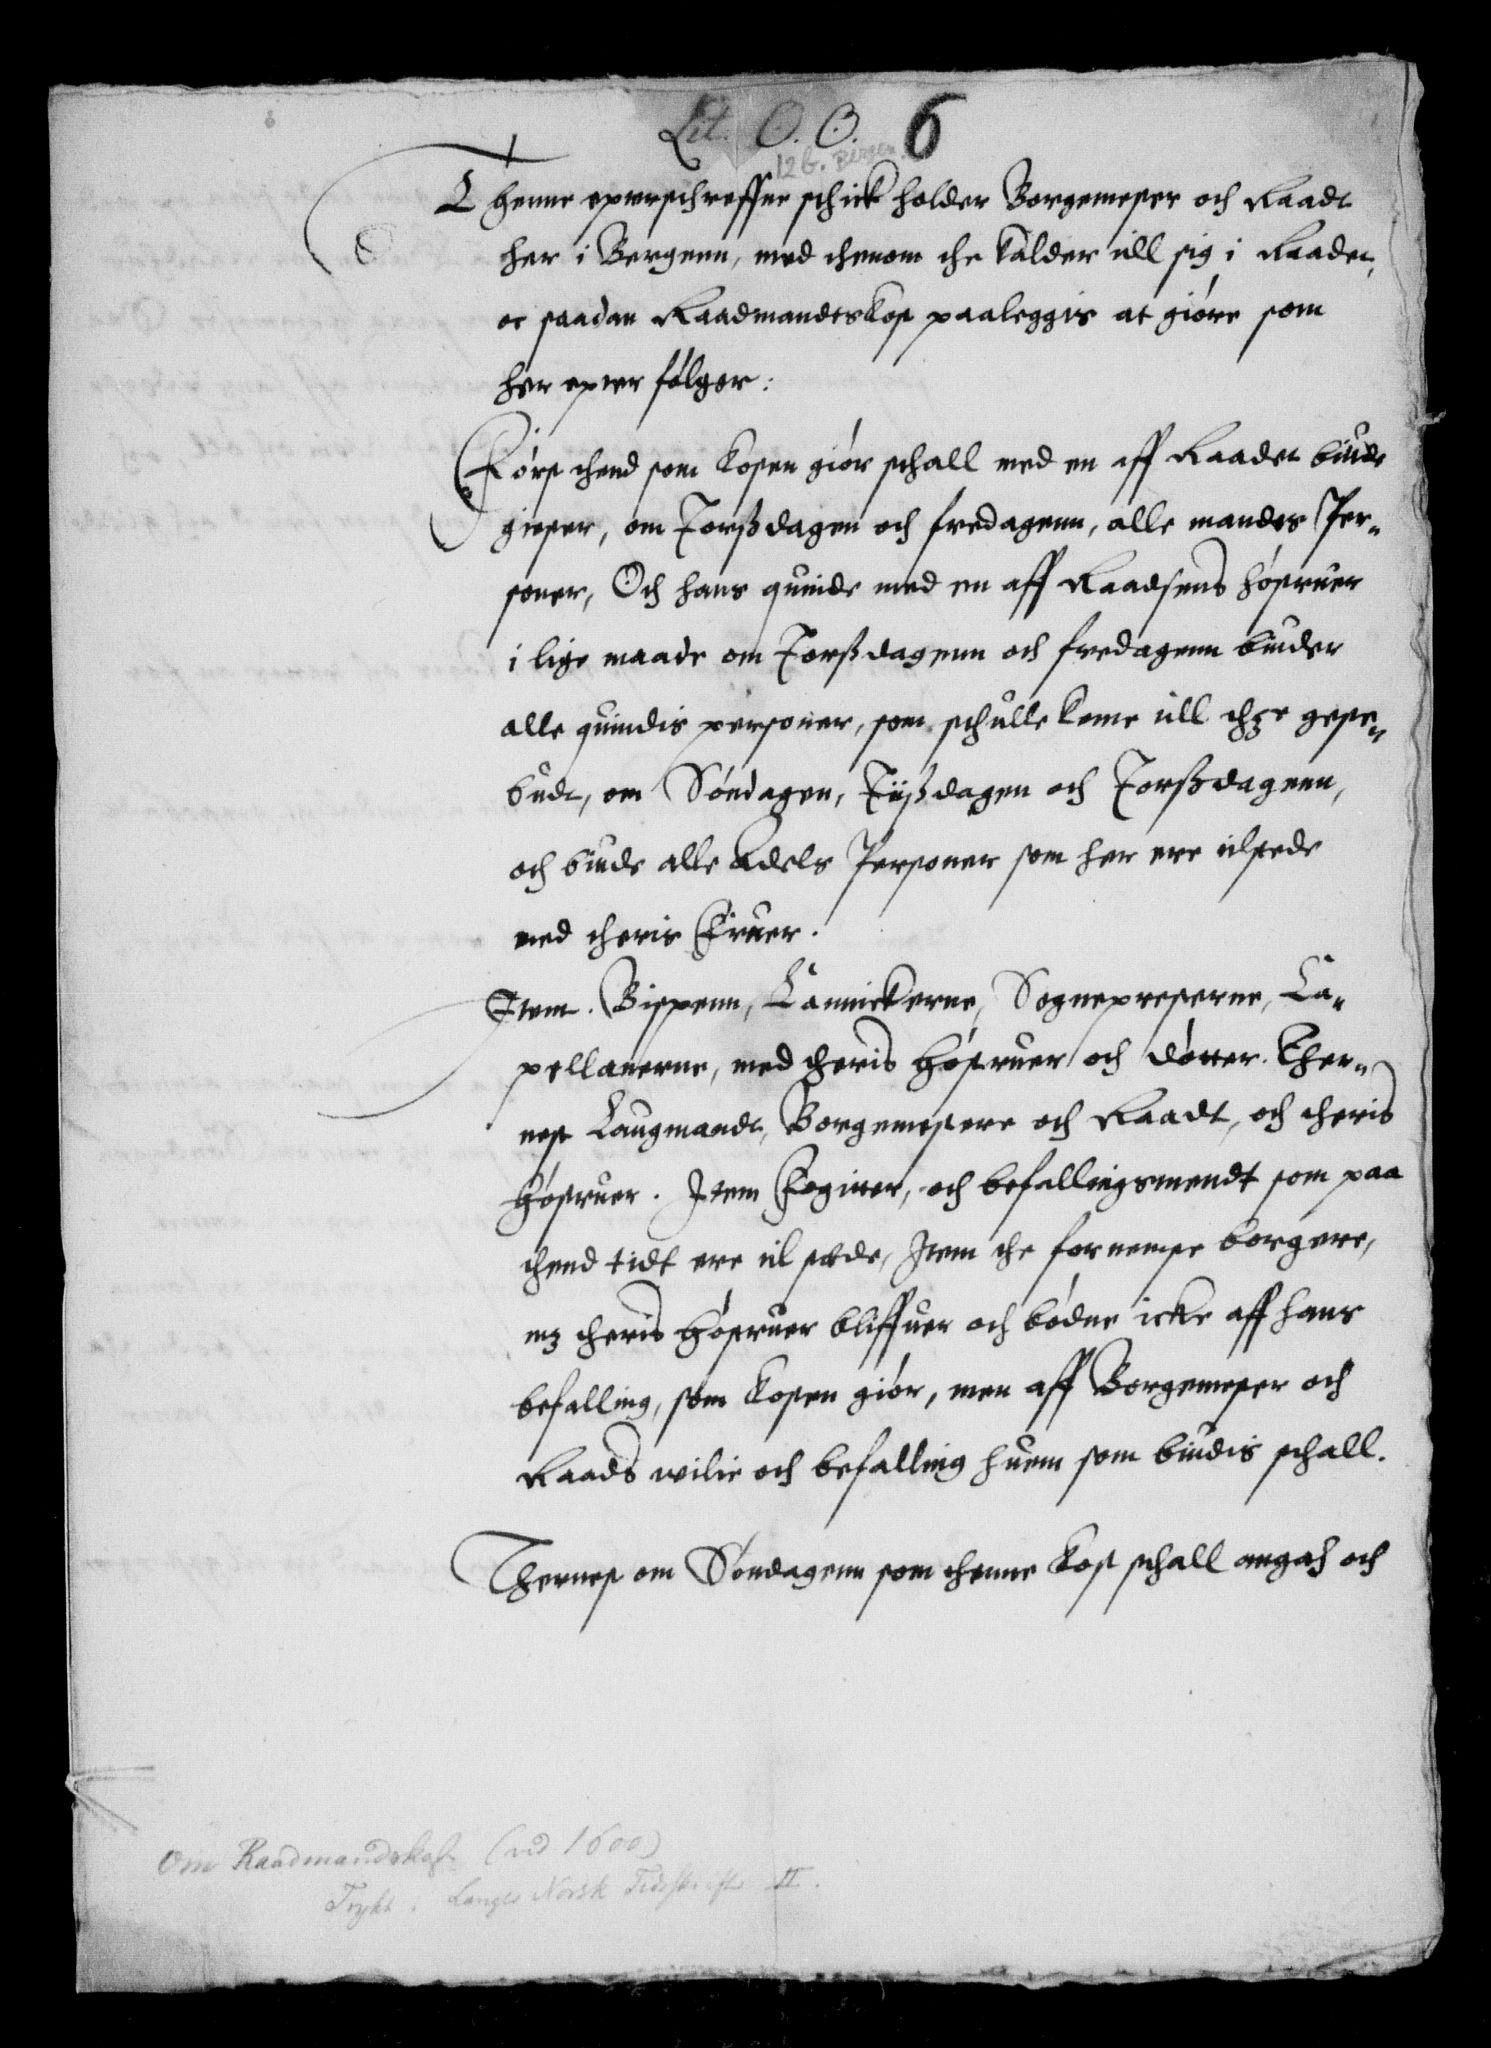 Lit. O. O. 6
12 b. Bergen.
Thenne epterschreffne schick holder Borgemester och Raadt
her i Bergenn, med thenom the kalder till sig i Raadet,
oc saadan Raadmandtskost paaleggis at giøre som
her epter følger:
Først thend som kosten giør schall med en aff Raadet biude
giester, om Torssdagen och fredagenn, alle mandts Per-
soner, Och hans quinde med en aff Raadsens høstruer
i lige maade om Torssdagenn och fredagenn biuder
alle quindis personer, som schulle kome till thz geste-
budt, om Søndagen, Tijssdagen och Torssdagenn,
och biude alle Adels Personer som her ere tilstede
med theris Fruer.
Item. Bispenn, Cannickerne, Sognepresterne, Ca-
pellanerne, med theris høstruer och døtter. Ther-
nest Laugmandt, Borgemestere och Raadt, och theris
høstruer. Item Fogitter, och befallingsmendt som paa
thend tidt ere til stæde, Item the fornemste borgere,
mz theris høstruer bliffuer och bødne icke aff hans
befalling, som kosten giør, men aff Borgemester och
Raads wilie och befalling huem som biudis schall.
Thernest om Søndagenn som thenne kost schall angach och
Om Raadmandskost (ved 1600)
Trykt i Langes Norsk Tidsskrift II.